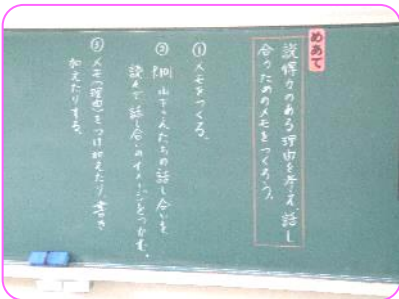 めあて
説得力のある理由を考え、話し
合うためのメモをつくろう。
① メモをつくる。
② 山下さんたちの話し合いを
読んで 話し合いのイメージをつかむ。
③ メモ(理由)をつけ加えたり、書き
加えたりする。